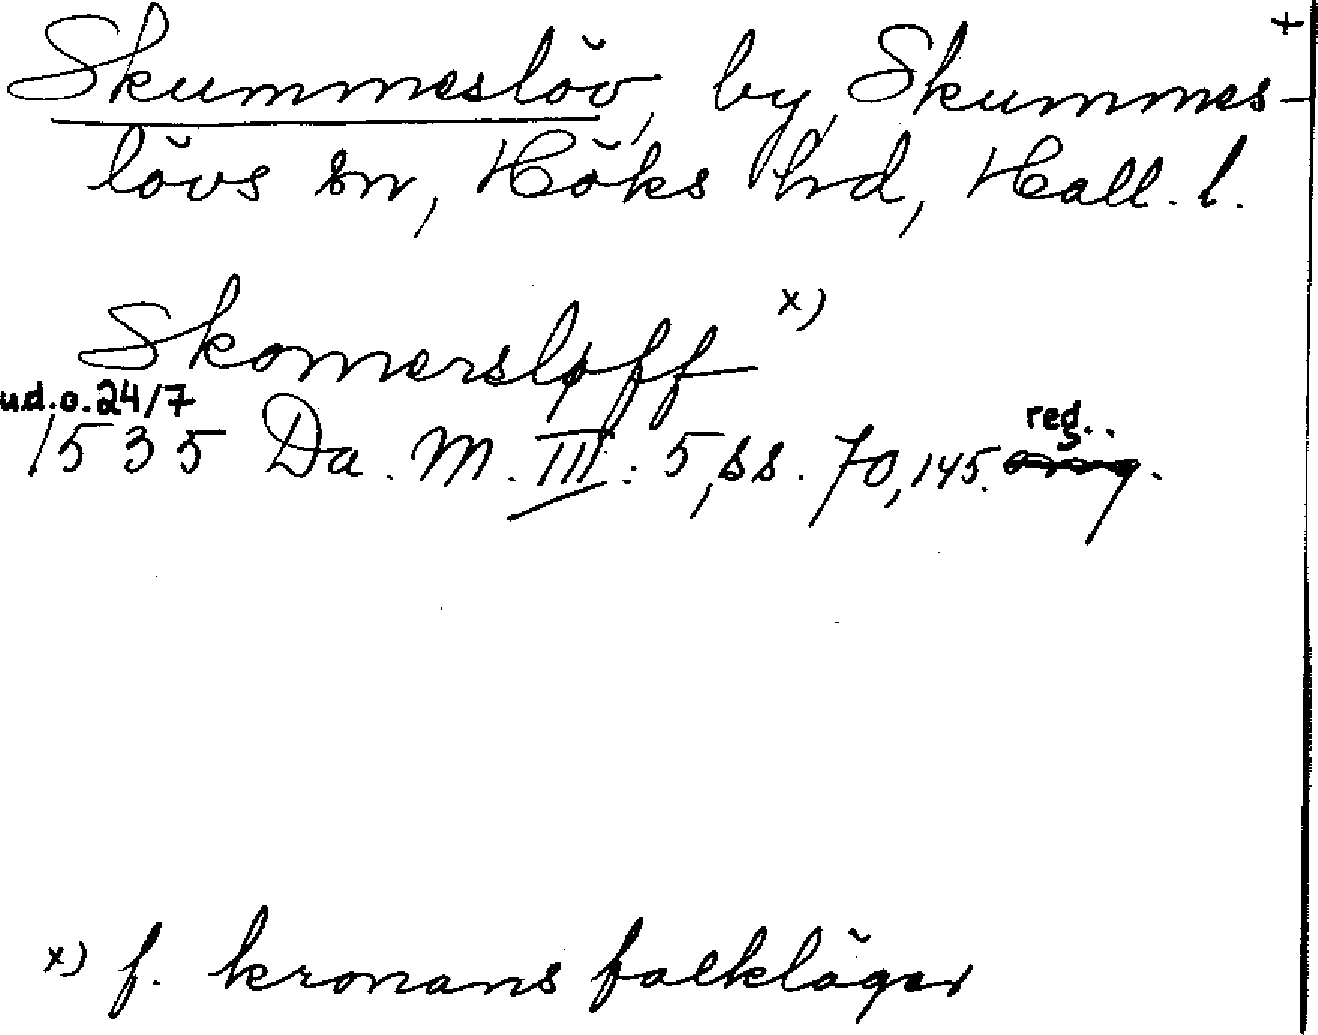 +
Skummeslöv, by, Skummes-
lövs sn, Höks hd, Hall. l.
Skomersløff x)
ud.o.24/7
1535 Da. M. III: 5, ss. 70, 145. reg..
x) f. kronans folkläger